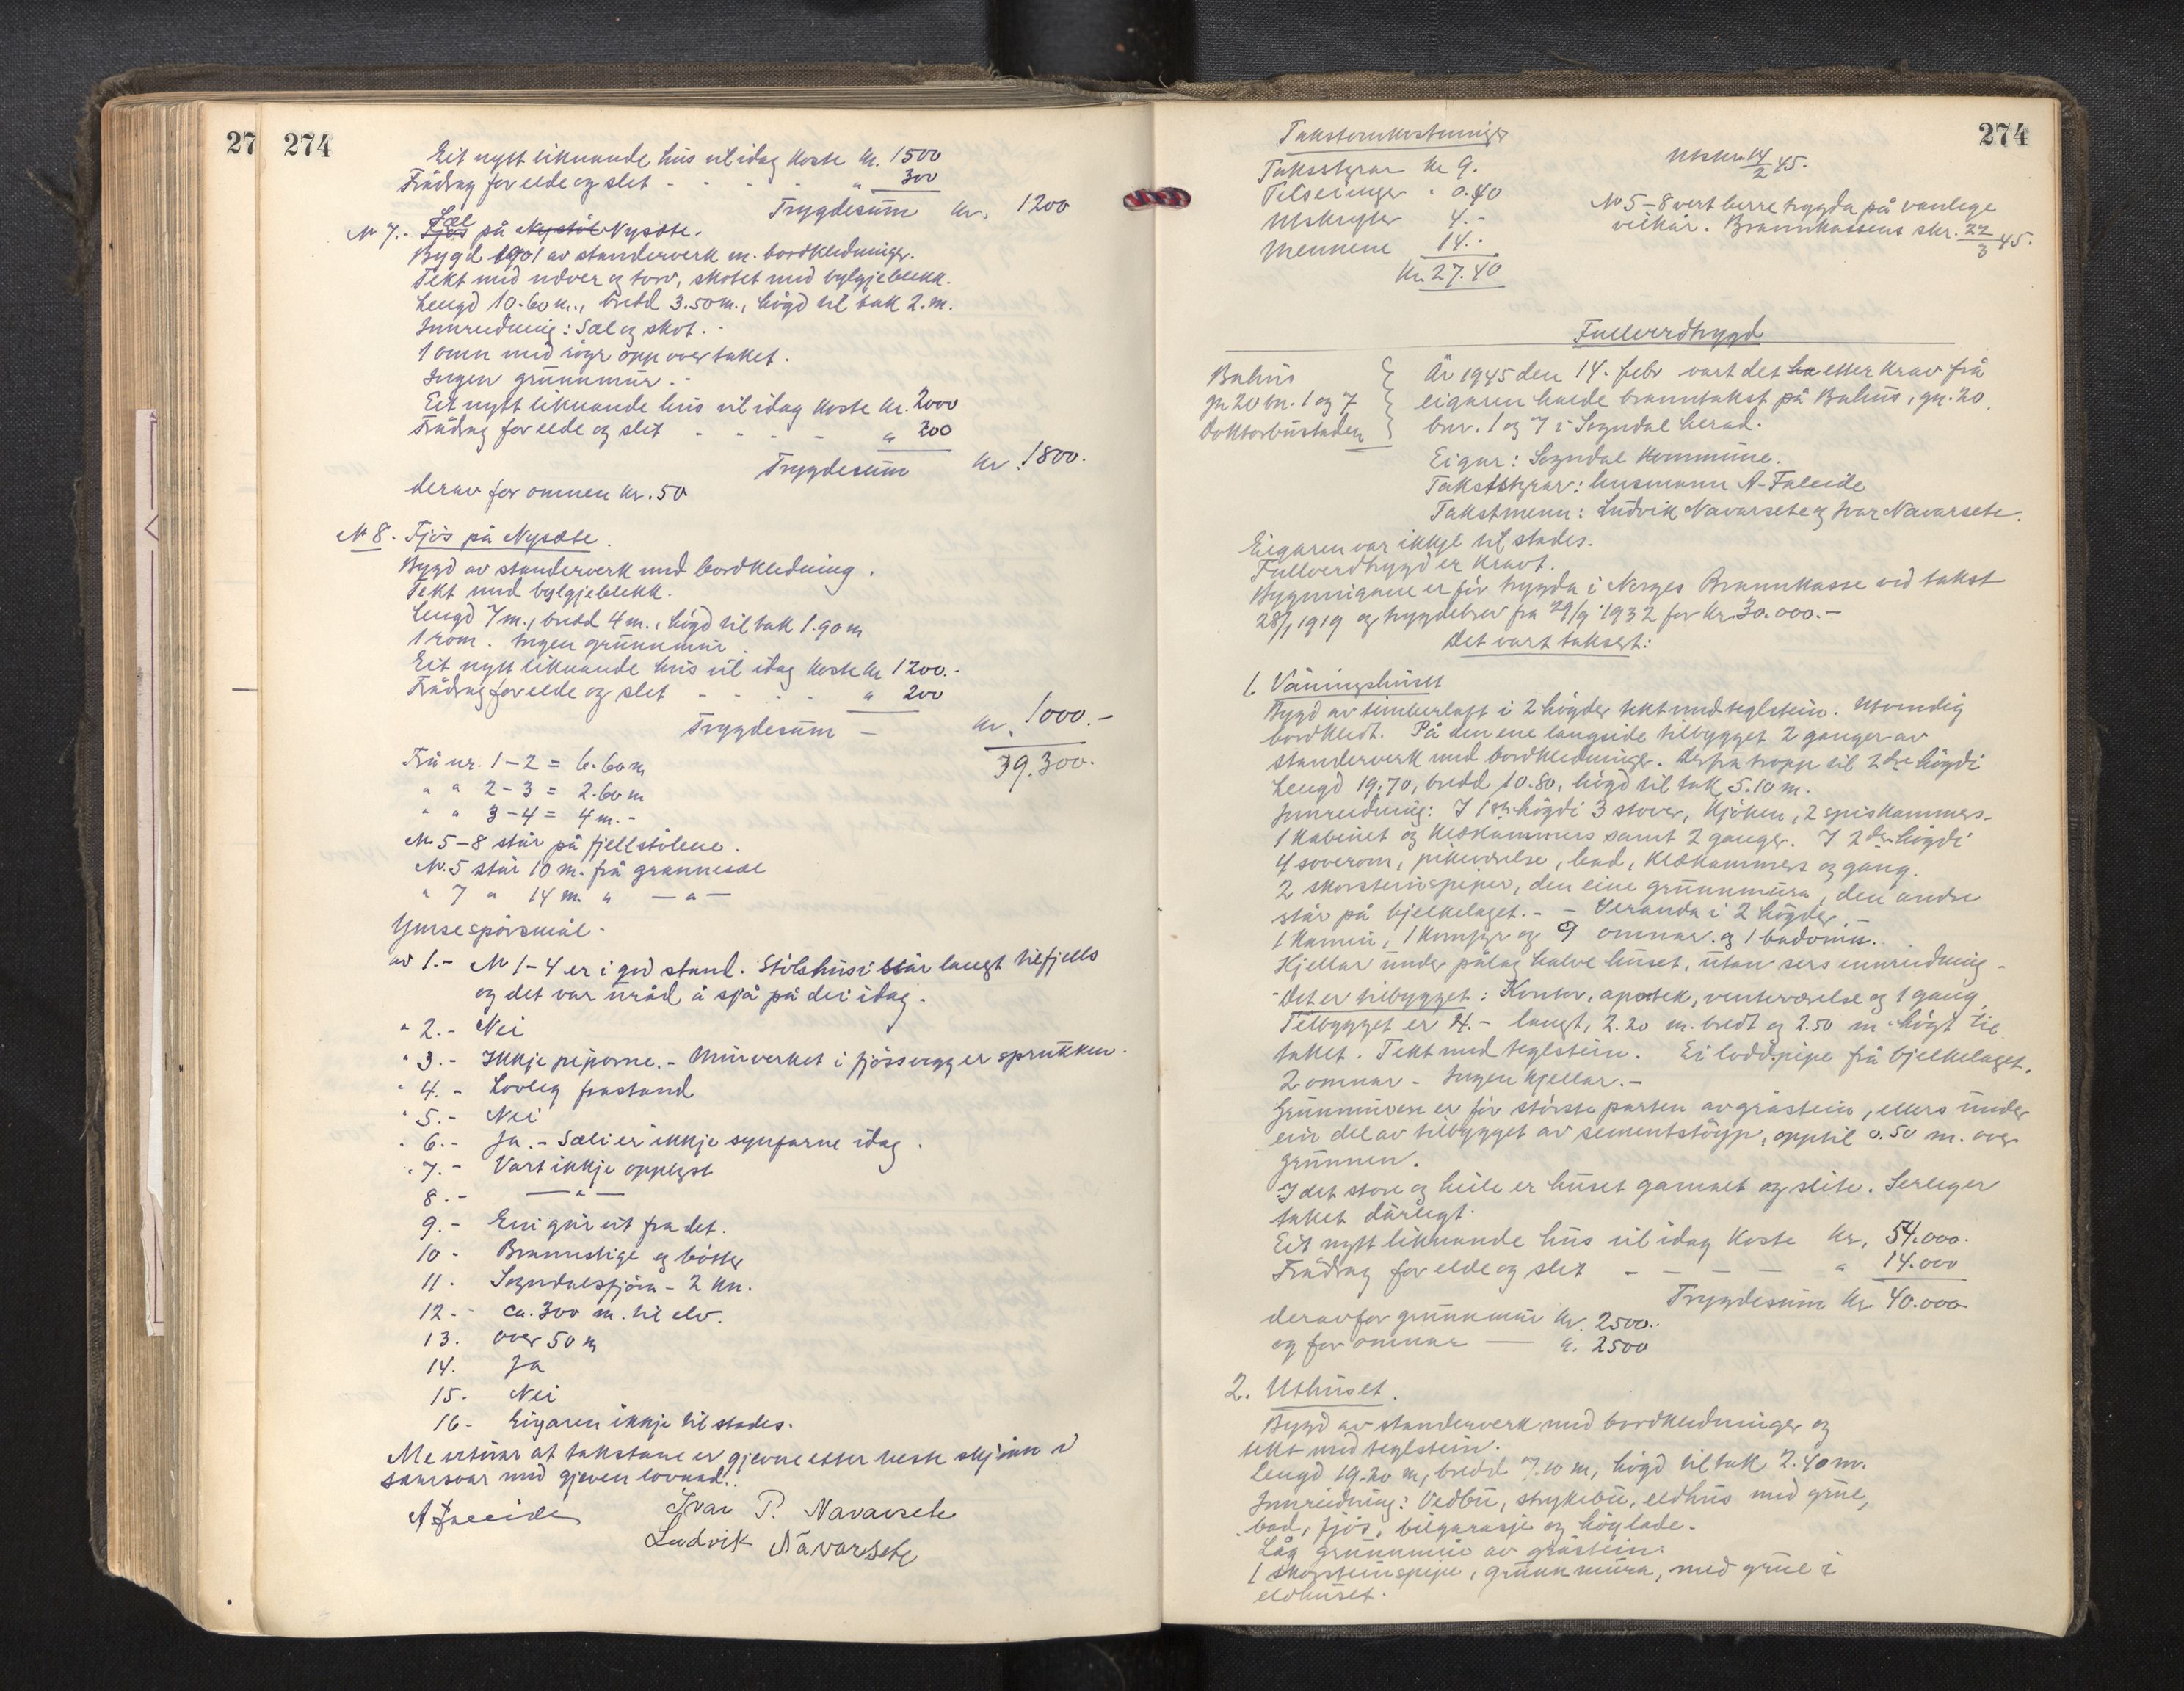 27
274
Eit nytt liknande hus vil idag koste kr. 1500
Frådrag for elde og slit - - - - " 300
Trygdesum kr. 1200
№ 7.- Fjøs Sæl på Nystøl Nysæte.
Bygd 1901 av standerverk m. bordkledningr.
Tekt med næver og torv, skotet med bylgjeblekk.
Lengd 10.60 m., bredd 3.50 m., høgd til tak 2. m.
Innreidning: Sæl og skot. -
1 omn med røyr opp over taket.
Ingen grunnmur. -
Eit nytt liknande hus vil idag koste kr. 2000
Frådrag for elde og slit - - - - " 200
Trygdesum kr. 1800.
derav for omnen kr. 50
№ 8. Fjøs på Nysæte.
Bygd av standerverk med bordkledning.
Tekt med bylgjeblekk.
Lengd 7 m., bredd 4 m., høgd til tak 1.90 m
1 rom. Ingen grunnmur.
Eit nytt liknande hus vil idag koste kr 1200.-
Frådrag for elde og slit - - - - " 200
Trygdesum — kr. 1000.-
39.300.-
Frå nr. 1-2 = 6.60 m
" " 2-3 = 2.60 m
" " 3-4 = 4 m.-
№ 5-8 står på fjellstølene.
№ 5 står 10 m. frå grannesæl
" 7 " 14 m. " — " —
Ymse spørsmål -
av 1.- № 1-4 er i god stand. Stølshusi står langt tilfjells
og det var uråd å sjå på dei idag.
" 2.- Nei
" 3.- Ikkje piporne.- Murverket i fjøsvegg er sprukken.
" 4.- Lovleg frastand
" 5.- Nei
" 6.- Ja.- Sæli er ikkje synfarne idag.
" 7.- Vart ikkje opplyst
8.- — " —
9.- Ein går ut fra det.
10- Brannstige og bøtter
11. Sogndalsfjøra - 2 km.
12.- ca. 300 m. til elv.
13. over 50 m
14. Ja
15. Nei
16- Eigaren ikkje til stades.
Me vitnar at takstane er gjevne etter beste skjønn i
samsvar med gjeven lovnad.
A Faleide Ivar P. Navarsete
Ludvik Navarsete
274
Takstomkostninger
Takststyrar kr 9.
Telseiinger " 0.40
Utskrifter 4.-
Mennene 14.-
Kr. 27.40
Utskr. 14/2 45.
№ 5-8 vert berre trygda på vanlege
vilkår. Brannkassens skr. 22/3 45.
Fullverdtrygd
Buhus
gn 20 bn. 1 og 7
Doktorbustaden
År 1945 den 14. febr vart det ha etter krav frå
eigaren halde branntakst på Buhus, gn. 20,
bnr. 1 og 7 i Sogndal herad.
Eigar: Sogndal Kommune.
Takststyrar: lensmann A. Faleide
Takstmenn: Ludvik Navarsete og Ivar Navarsete.
Eigaren var ikkje til stades.
Fullverdtrygd er kravt.
Bygningane er før trygda i Norges Brannkasse ved takst
28/1 1919 og trygdebrev fra 29/9 1932 for kr. 30.000.-
Det vart taksert:
1. Våningshuset
Bygd av timberlaft i 2 høgder tekt med teglstein. Utvendig
bordkledt. På den ene langside tilbygget 2 ganger av
standerverk med bordkledninger. Derfra tropp til 2dre høgdi
Lengd 19.70, bredd 10.80, høgd til tak 5.10 m.
Innreidning: I 1ste høgdi 3 stover, kjøken, 2 spiskammers-
1 kabinet og klækammers samt 2 ganger. I 2dre høgdi
4 soverom, pikeværelse, bad, klækammers og gang.
2 skorsteinspiper, den eine grunnmura, den andre
står på bjelkelaget.- - Veranda i 2 høgder.-
1 kamin, 1 komfyr og 9 omnar. og 1 badomn.
Kjellar under pålag halve huset, utan sers innreidning -
- Det er tilbygget: Kontor, apotek, venteværelse og 1 gang.
Tilbygget er 4.- langt, 2.20 m. bredt og 2.50 m. høgt til
taket. Tekt med teglstein. Ei lodd.pipe frå bjelkelaget.
2 omnar - Ingen kjellar.-
Grunnmuren er for største parten av gråstein, ellers under
ein del av tilbygget av sementstøyp, opptil 0.50 m. over
grunnen.
I det store og heile er huset gamalt og slite. Serleger
taket dårlegt.
Eit nytt liknande hus vil idag koste kr. 54.000.-
Frådrag for elde og slit - - - - " 14.000
Trygdesum kr 40.000-
derav for grunnmur kr. 2500.-
og for omnar — ". 2500
2. Uthuset.
Bygd av standerverk med bordkledninger og
tekt med teglstein.
Lengd 19.20 m, bredd 7.10 m, høgd til tak 2.40 m.
Innreidning: Vedbu, strykebu, eldhus med grue,
bad, fjøs, bilgarasje og høylade.
Låg grunnmur av gråstein.
1 skorsteinspipe, grunnmura, med grue i
eldhuset.